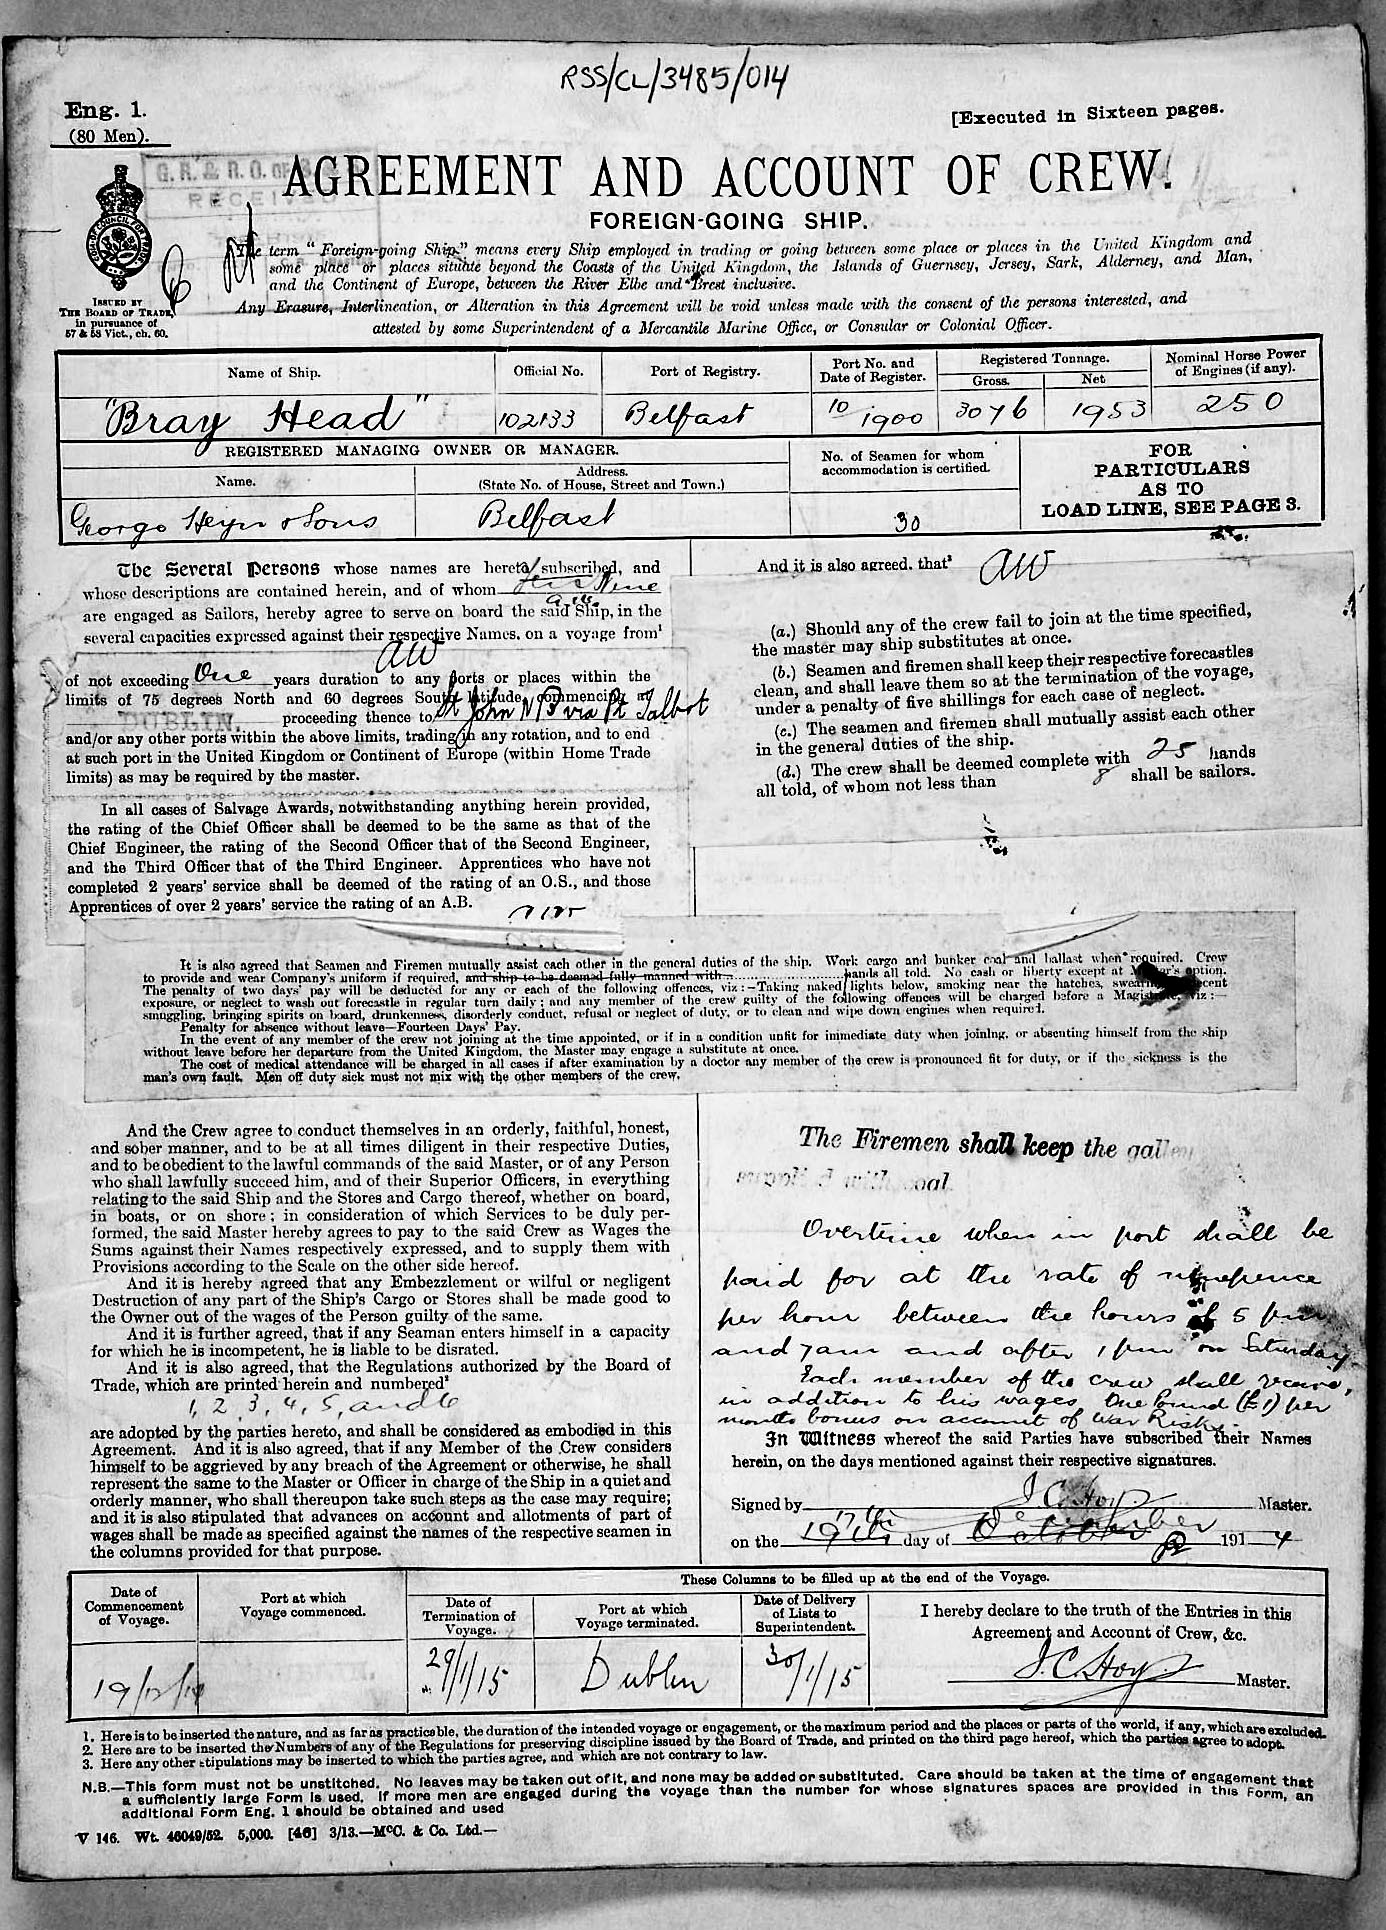 RSS/CL/3485/014
Eng. 1.
(80 Men).
[Executed in Sixteen pages.
G. R. & R. O. OF
RECEIVED
AGREEMENT AND ACCOUNT OF CREW.
FOREIGN-GOING SHIP.
The term "Foreign-going Ship" means every Ship employed in trading or going between some place or places in the United Kingdom and
some place or places situate beyond the Coasts of the United Kingdom, the Islands of Guernsey, Jersey, Sark, Alderney, and Man,
and the Continent of Europe, between the River Elbe and Brest inclusive.
Any Erasure, Interlineation, or Alteration in this Agreement will be void unless made with the consent of the persons interested, and
attested by some Superintendent of a Mercantile Marine Office, or Consular or Colonial Officer.
ISSUED BY
THE BOARD OF TRADE,
in pursuance of
57 & 58 Vict., ch. 60.
Name of Ship.
Official No.
Port of Registry.
Port No. and
Date of Register.
Registered Tonnage.
Gross.
Net
Nominal Horse Power
of Engines (if any).
"Bray Head"
102133
Belfast
10/1900
3076
1953
250
REGISTERED MANAGING OWNER OR MANAGER.
Name.
Address.
(State No. of House, Street and Town.)
No. of Seamen for whom
accommodation is certified.
FOR
PARTICULARS
AS TO
LOAD LINE, SEE PAGE 3.
George Heyn & Sons
Belfast
30
The Several Persons whose names are hereto subscribed, and
whose descriptions are contained herein, and of whom Nine
are engaged as Sailors, hereby agree to serve on board the said Ship, in the
several capacities expressed against their respective Names, on a voyage from¹
aw
of not exceeding One years duration to any ports or places within the
limits of 75 degrees North and 60 degrees South latitude, commencing at
DUBLIN, proceeding thence to St John NB via Pt Talbot
and/or any other ports within the above limits, trading in any rotation, and to end
at such port in the United Kingdom or Continent of Europe (within Home Trade
limits) as may be required by the master.
In all cases of Salvage Awards, notwithstanding anything herein provided,
the rating of the Chief Officer shall be deemed to be the same as that of the
Chief Engineer, the rating of the Second Officer that of the Second Engineer,
and the Third Officer that of the Third Engineer. Apprentices who have not
completed 2 years' service shall be deemed of the rating of an O.S., and those
Apprentices of over 2 years' service the rating of an A.B.
And it is also agreed, that³ aw
(a.) Should any of the crew fail to join at the time specified,
the master may ship substitutes at once.
(b.) Seamen and firemen shall keep their respective forecastles
clean, and shall leave them so at the termination of the voyage,
under a penalty of five shillings for each case of neglect.
(c.) The seamen and firemen shall mutually assist each other
in the general duties of the ship.
(d.) The crew shall be deemed complete with 25 hands
all told, of whom not less than 8 shall be sailors.
It is also agreed that Seamen and Firemen mutually assist each other in the general duties of the ship. Work cargo and bunker coal and ballast when required. Crew
to provide and wear Company's uniform if required, and ship to be deemed fully manned with hands all told. No cash or liberty except at Master's option.
The penalty of two days' pay will be deducted for any or each of the following offences, viz:—Taking naked lights below, smoking near the hatches,
exposure, or neglect to wash out forecastle in regular turn daily; and any member of the crew guilty of the following offences will be charged before a Magistrate, viz:—
smuggling, bringing spirits on board, drunkenness, disorderly conduct, refusal or neglect of duty, or to clean and wipe down engines when required.
Penalty for absence without leave—Fourteen Days' Pay.
In the event of any member of the crew not joining at the time appointed, or if in a condition unfit for immediate duty when joining, or absenting himself from the ship
without leave before her departure from the United Kingdom, the Master may engage a substitute at once.
The cost of medical attendance will be charged in all cases if after examination by a doctor any member of the crew is pronounced fit for duty, or if the sickness is the
man's own fault. Men off duty sick must not mix with the other members of the crew.
And the Crew agree to conduct themselves in an orderly, faithful, honest,
and sober manner, and to be at all times diligent in their respective Duties,
and to be obedient to the lawful commands of the said Master, or of any Person
who shall lawfully succeed him, and of their Superior Officers, in everything
relating to the said Ship and the Stores and Cargo thereof, whether on board,
in boats, or on shore; in consideration of which Services to be duly per-
formed, the said Master hereby agrees to pay to the said Crew as Wages the
Sums against their Names respectively expressed, and to supply them with
Provisions according to the Scale on the other side hereof.
And it is hereby agreed that any Embezzlement or wilful or negligent
Destruction of any part of the Ship's Cargo or Stores shall be made good to
the Owner out of the wages of the Person guilty of the same.
And it is further agreed, that if any Seaman enters himself in a capacity
for which he is incompetent, he is liable to be disrated.
And it is also agreed, that the Regulations authorized by the Board of
Trade, which are printed herein and numbered²
1, 2, 3, 4, 5, and 6
are adopted by the parties hereto, and shall be considered as embodied in this
Agreement. And it is also agreed, that if any Member of the Crew considers
himself to be aggrieved by any breach of the Agreement or otherwise, he shall
represent the same to the Master or Officer in charge of the Ship in a quiet and
orderly manner, who shall thereupon take such steps as the case may require;
and it is also stipulated that advances on account and allotments of part of
wages shall be made as specified against the names of the respective seamen in
the columns provided for that purpose.
The Firemen shall keep the galley
supplied with coal
Overtime when in port shall be
paid for at the rate of ninepence
per hour between the hours of 5 pm
and 7am and after 1 pm on Saturday
Each member of the crew shall receive,
in addition to his wages, One Pound (£1) per
month bonus on account of War Risks.
In Witness whereof the said Parties have subscribed their Names
herein, on the days mentioned against their respective signatures.
Signed by J. C. Hoy Master.
on the 17th day of December 1914
These Columns to be filled up at the end of the Voyage.
Date of
Commencement
of Voyage.
Port at which
Voyage commenced.
Date of
Termination of
Voyage.
Port at which
Voyage terminated.
Date of Delivery
of Lists to
Superintendent.
I hereby declare to the truth of the Entries in this
Agreement and Account of Crew, &c.
19/12/14
29/1/15
Dublin
30/1/15
J. C. Hoy Master.
1. Here is to be inserted the nature, and as far as practicable, the duration of the intended voyage or engagement, or the maximum period and the places or parts of the world, if any, which are excluded.
2. Here are to be inserted the Numbers of any of the Regulations for preserving discipline issued by the Board of Trade, and printed on the third page hereof, which the parties agree to adopt.
3. Here any other stipulations may be inserted to which the parties agree, and which are not contrary to law.
N.B.—This form must not be unstitched. No leaves may be taken out of it, and none may be added or substituted. Care should be taken at the time of engagement that
a sufficiently large Form is used. If more men are engaged during the voyage than the number for whose signatures spaces are provided in this Form, an
additional Form Eng. 1 should be obtained and used
V 146. Wt. 46049/52. 5,000. [46] 3/13.—McC. & Co. Ltd.—